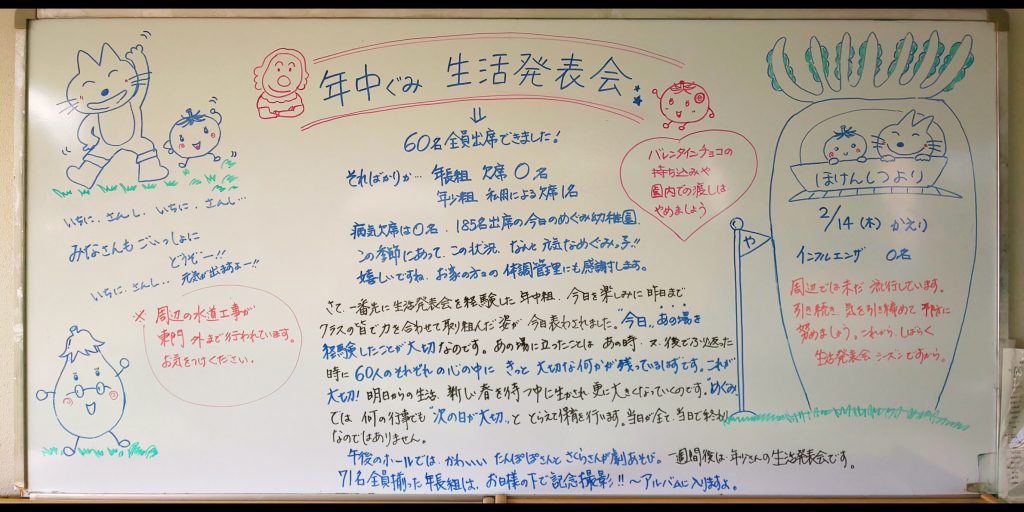 年中ぐみ 生活発表会
60名全員出席できました!
そればかりか… 年長組 欠席 0名
年少組 私用による欠席1名
病気欠席は0名。185名出席の今日のめぐみ幼稚園。
この季節にあって、この状況、なんと元気なめぐみっ子!!
嬉しいですね。お家の方々の体調管理にも感謝します。
さて、一番先に生活発表会を経験した年中組。今日を楽しみに昨日まで
クラスの皆で力を合わせて取り組んだ姿が今日表わされました。"今日、あの場を
経験したことが大切なのです。あの場に立ったことは あの時、又、後でふり返った
時に60人のそれぞれの心の中に きっと大切な何かが残っているはずです。これが
大切!明日からの生活、新しい春を待つ中に生かされ更に大きくなっていくのです。"めぐみ"
では 何の行事でも"次の日が大切"っと とらえて保育を行います。当日が全て、当日で終わり
なのではありません。
午後のホールでは、かわいい たんぽぽさんと さくらさんが劇あそび。一週間後は年少さんの生活発表会です。
71名全員揃った年長組は、お日様の下で記念撮影!!〜アルバムに入りますよ。
いちに、さんし、いちに、さんし…
みなさんもごいっしょに
どうぞー!!
いちに、さんし… 元気が出ますよー!!
※ 周辺の水道工事が
東門 外まで行われています。
お気をつけください。
バレンタインチョコの
持ち込みや
園内での渡しは
やめましょう
や
ほけんしつより
2/14(木) かえり
インフルエンザ 0名
周辺では未だ流行しています。
引き続き 気を引き締めて 予防に
努めましょう。これから、しばらく
生活発表会シーズンですから。